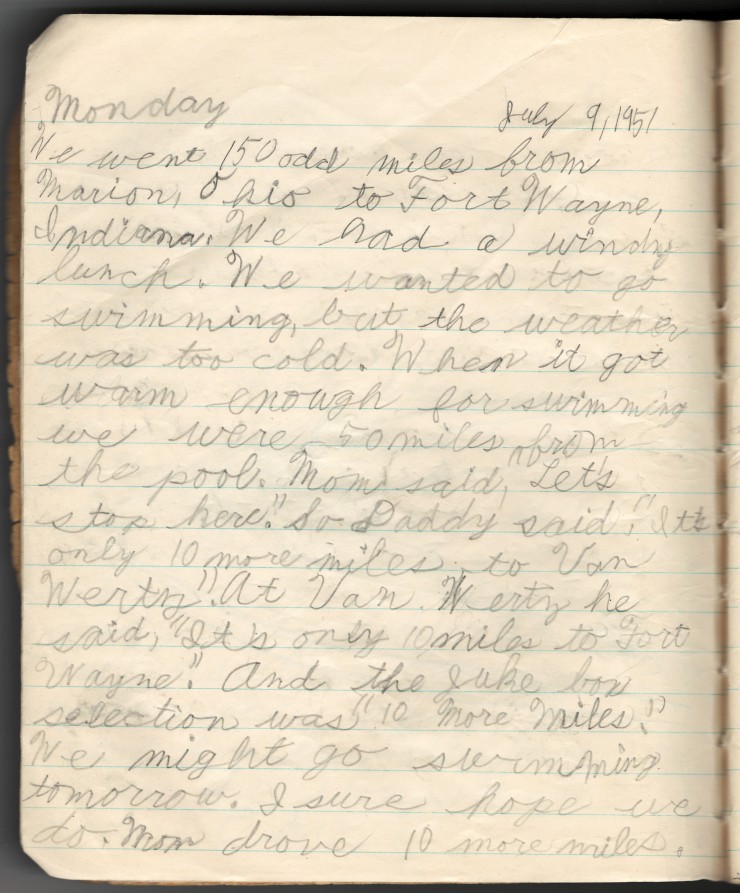 Monday July 9, 1951
We went 150 odd miles from
Marion, Ohio to Fort Wayne,
Indiana. We had a windy
lunch. We wanted to go
swimming, but the weather
was too cold. When it got
warm enough for swimming
we were 50 miles from
the pool. Mom said, "Let's
stop here." So Daddy said, "It's
only 10 more miles to Van
Werty". At Van Werty he
said, "It's only 10 miles to Fort
Wayne." And the Juke box
selection was "10 More Miles."
We might go swimming
tomorrow. I sure hope we
do. Mom drove 10 more miles.